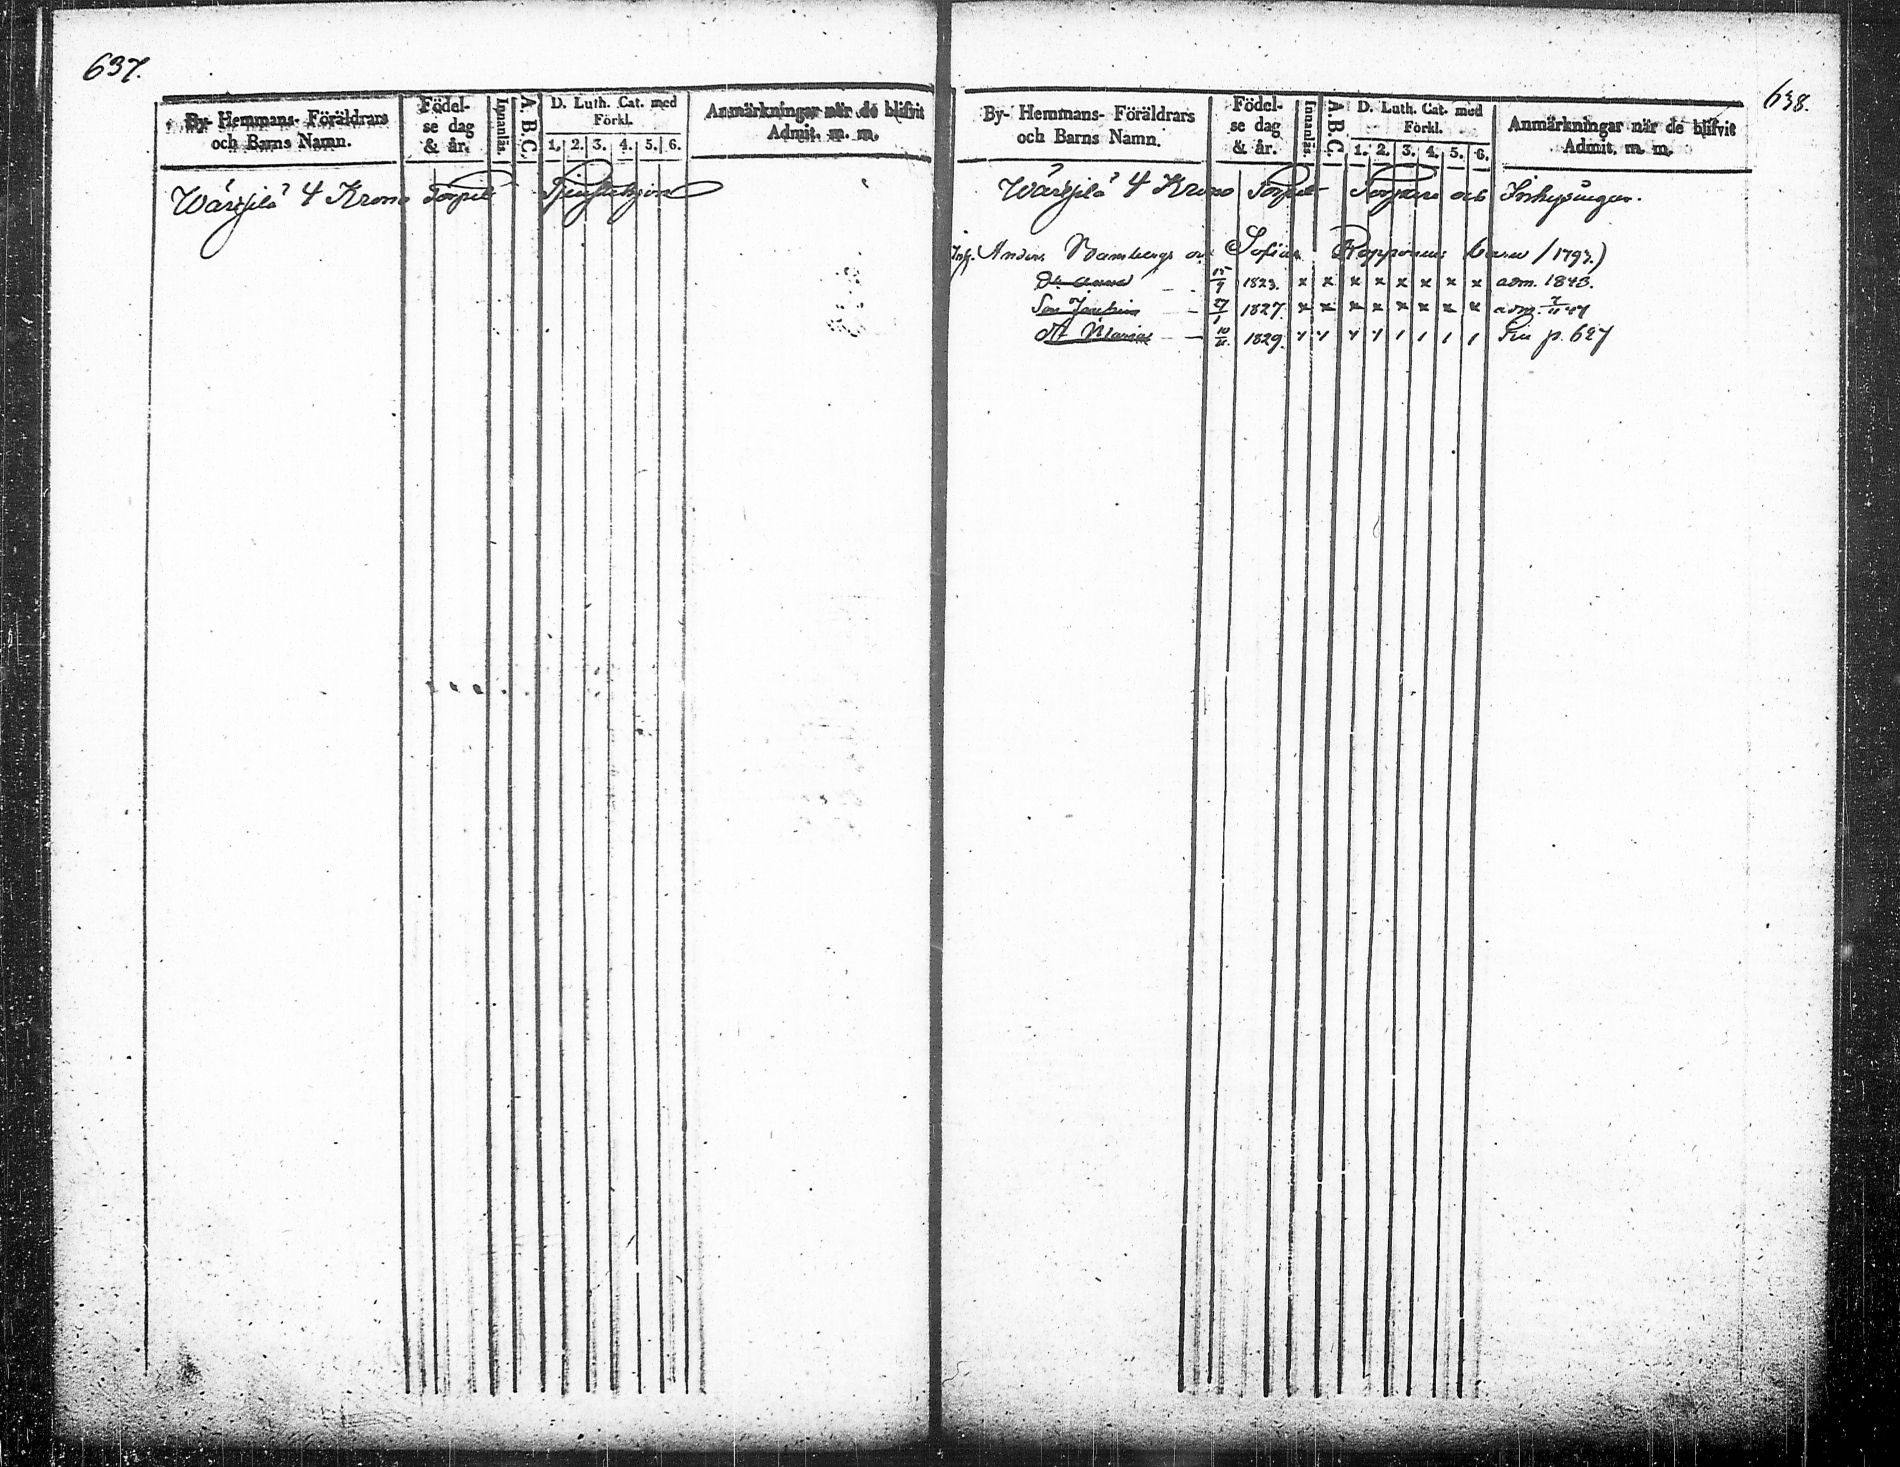 637.
By- Hemmans- Föräldrars och Barns Namn.
Födel- se dag & år.
Innanläs.
A.B.C.
D. Luth. Cat. med Förkl.
1. 2. 3. 4. 5. 6.
Anmärkningar när de blifvit Admit. m. m.
Wärtsilä 4 Krono Torpet
638.
By- Hemmans- Föräldrars och Barns Namn.
Födel- se dag & år.
Innanläs.
A.B.C.
D. Luth. Cat. med Förkl.
1. 2. 3. 4. 5. 6.
Anmärkningar när de blifvit Admit. m. m.
Wärtsilä 4 Krono Torpet Torpare och Inhysingar.
Inh. Anders Bambergs och Sofias Repponens barn (1793.)
Dr Anna 15/9 1823. x x x x x x x x adm. 1843.
Son 27/1 1827. x x x x x x x x adm.
Dr Maria 10/11 1829. p. 627